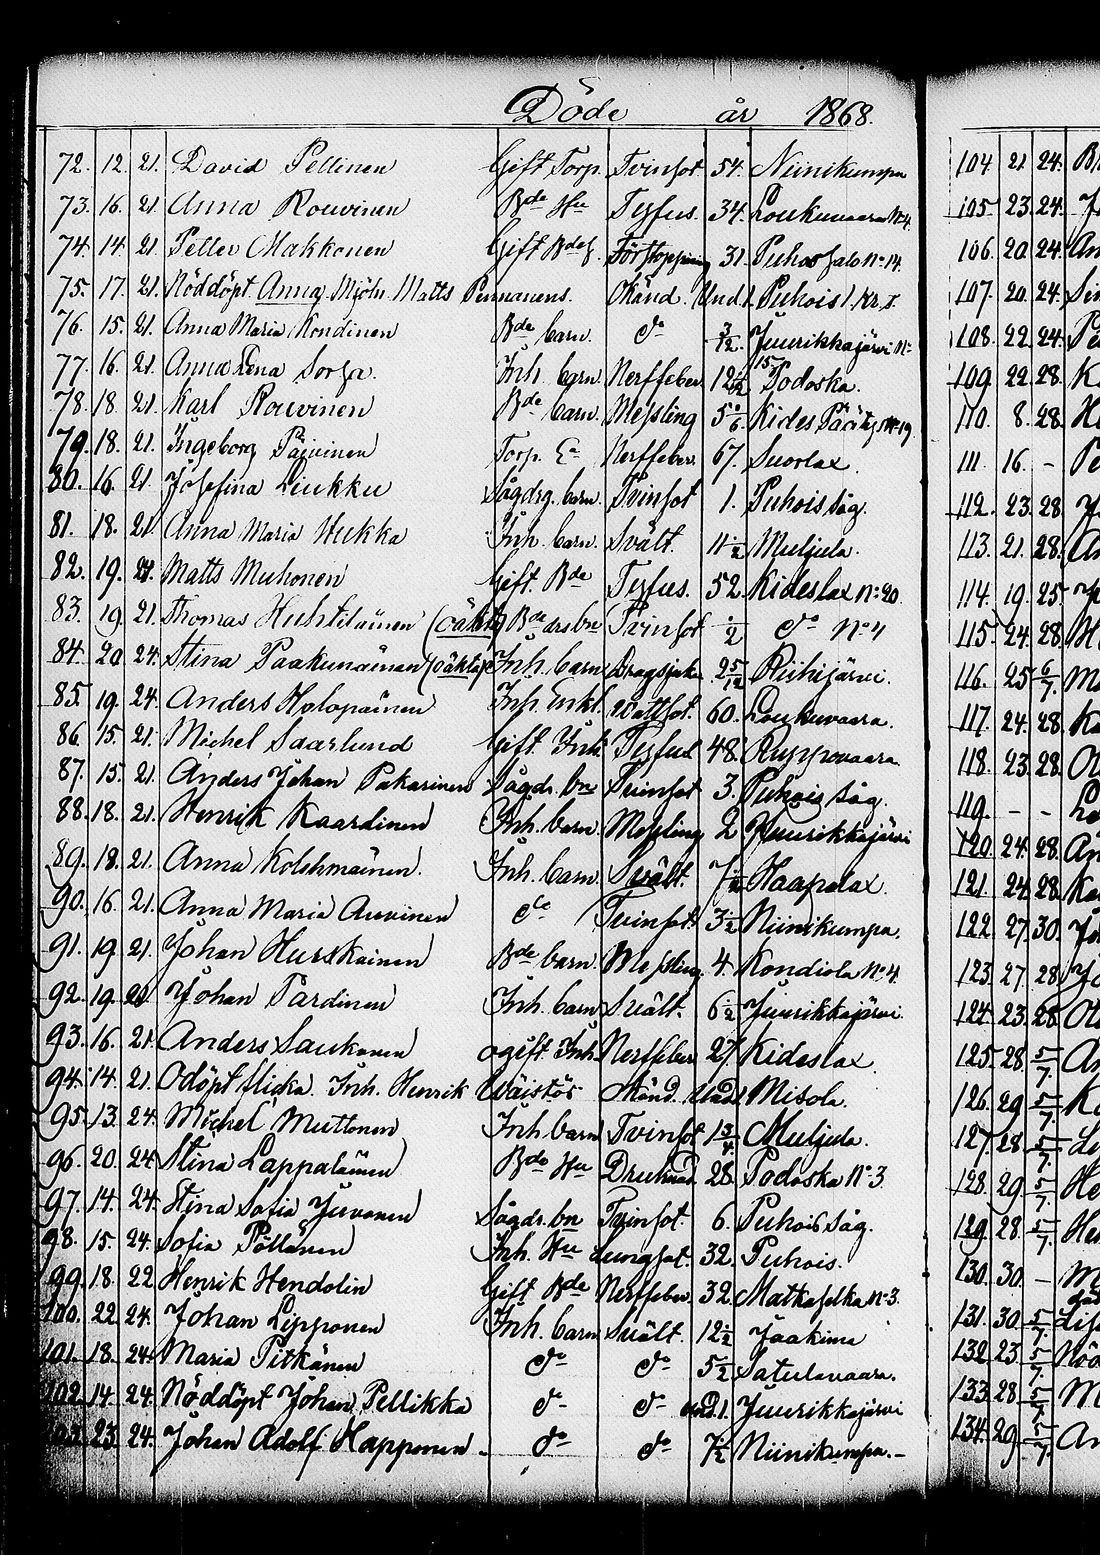 Döde år 1868.
72. 12. 21. David Pellinen Gift Torp. Tvinsot 54. Niinikumpu
73. 16. 21. Anna Rouvinen Bde Hu Tyfus. 34. Loukuvaara No 4.
74. 14. 21. Petter Makkonen Gift Bdes. Förstoppning 31. Puhossalo No 14.
75. 17. 21. Nöddöpt Anna Mjöln. Matts Pennanens. Okänd. Und. 1. Puhois 1. Kr. s.
76. 15. 21. Anna Maria Kondinen Bde barn. do 3/12. Juurikkajärvi No 15
77. 16. 21. Anna Lena Sorsa. Inh. barn. Nervfeber 12 1/2 Podoska.
78. 18. 21. Karl Rouvinen Bde barn. Messling 5 5/6 Kides No 19
79. 18. 21. Ingeborg Päivinen Torp. Ea Nervfeber. 67. Suorlax.
80. 16. 21. Josefina Liukku Sågdrg. barn. Tvinsot 1. Puhois såg.
81. 18. 21. Anna Maria Hukka Inh. barn. Svält. 11 1/2 Muljula.
82. 19. 21. Matts Muhonen Gift. Bde Tyfus. 52. Kideslax No 20.
83. 19. 21. Thomas Huhtilainen (oäkta) Bde drs bn Tvinsot 1/2 do No 4
84. 20. 24. Stina Paakunainen (oäkta) Inh. barn Dragsjuka 2 5/12 Riihijärvi.
85. 19. 24. Anders Holopainen Inh. Enkl. Vattsot. 60. Loukuvaara.
86. 15. 21. Michel Saarlund Gift. Inh. Tyfus 48. Ruppovaara
87. 15. 21. Anders Johan Pakarinen Sågdr. bn Tvinsot 3. Puhois såg.
88. 18. 21. Henrik Kaardinen Inh. barn. Messling 2 Juurikkajärvi
89. 18. 21. Anna Kolehmainen. Inh. barn. Svält. 7 1/2 Haapalax
90. 16. 21. Anna Maria Auvinen do Tvinsot. 3 1/2 Niinikumpu.
91. 19. 21. Johan Hurskainen Bde barn. Messling. 4. Kondiola No 4.
92. 19. 21. Johan Pardinen Inh. barn Svält. 6 1/2 Juurikkajärvi.
93. 16. 21. Anders Saukonen ogift. Inh. Nervfeber 27. Kideslax
94. 14. 21. Odöpt flicka. Inh. Henrik Väistös Okänd. Und. 1 Misola.
95. 13. 24. Michel Muttonen Inh. barn Tvinsot 1 3/4. Muljula.
96. 20. 24. Stina Lappalainen Bde Hu Druknad. 28. Podoska No 3
97. 14. 24. Stina Sofia Juvonen Sågdr. bn Tvinsot. 6. Puhois Såg.
98. 15. 24. Sofia Pöllänen Inh. Hu Lungsot. 32. Puhois.
99. 18. 22. Henrik Hendolin Gift Bde Nervfeber. 32. Matkaselka No 3.
100. 22. 24. Johan Lipponen Inh. barn Svält. 12 1/2 Jaakima
101. 18. 24. Maria Pitkänen do do 5 1/2 Satulavaara.
102. 14. 24. Nöddöpt Johan Pellikka do do und. 1. Juurikkajärvi
103. 23. 24. Johan Adolf Happonen. do do 7 1/2 Niinikumpu.
104. 21. 24.
105. 23. 24.
106. 20. 24.
107. 20. 24.
108. 22. 24.
109. 22. 28.
110. 8. 28.
111. 16. -
112. 23. 28.
113. 21. 28.
114. 19. 25.
115. 24. 28.
116. 25 6/7.
117. 24. 28.
118. 23. 28.
119. - -
120. 24. 28.
121. 24. 28.
122. 27. 30.
123. 27. 28.
124. 23. 28.
125. 28. 5/7.
126. 29. 5/7.
127. 28. 5/7.
128. 29. 5/7.
129. 28. 5/7.
130. 30. -
131. 30. 5/7.
132. 23. 5/7.
133. 28. 5/7.
134. 29. 5/7.